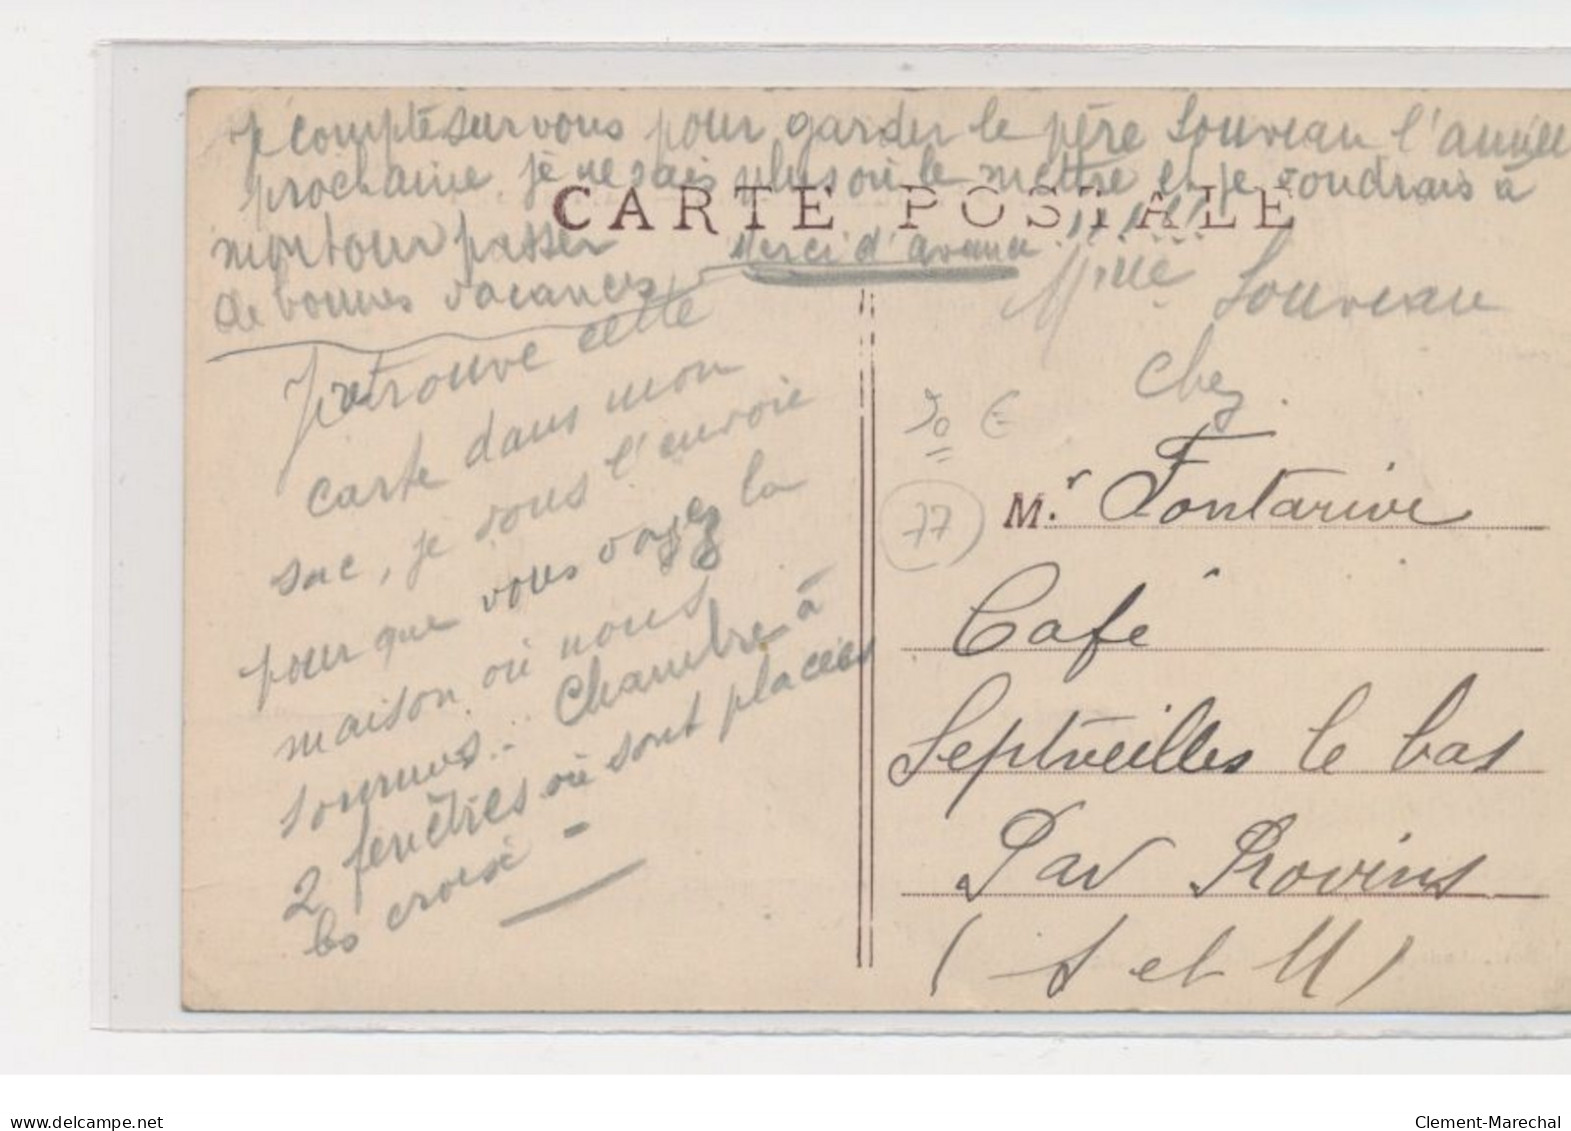 Je compte sur vous pour garder le père Souveau l'année
prochaine, je ne sais plus où le mettre et je voudrais à
mon tour passer
de bonnes vacances
Merci d'avance
CARTE POSTALE
Je retrouve cette
carte dans mon
sac, je vous l'envoie
pour que vous voyez la
maison où nous
sommes.. Chambre à
2 fenêtres où sont placées
les croix -
Mlle Souveau
chez
50 €
77
M.r Fontarive
Café
Septveilles le bas
Par Provins
(S et M)
www.delcampe.net
Clement-Marechal